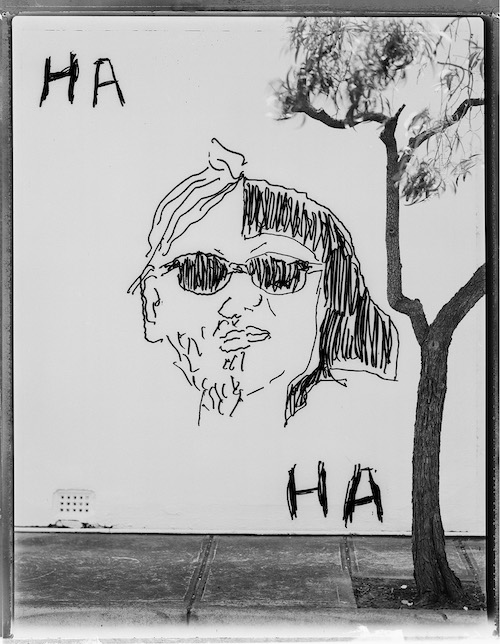 HA
HA